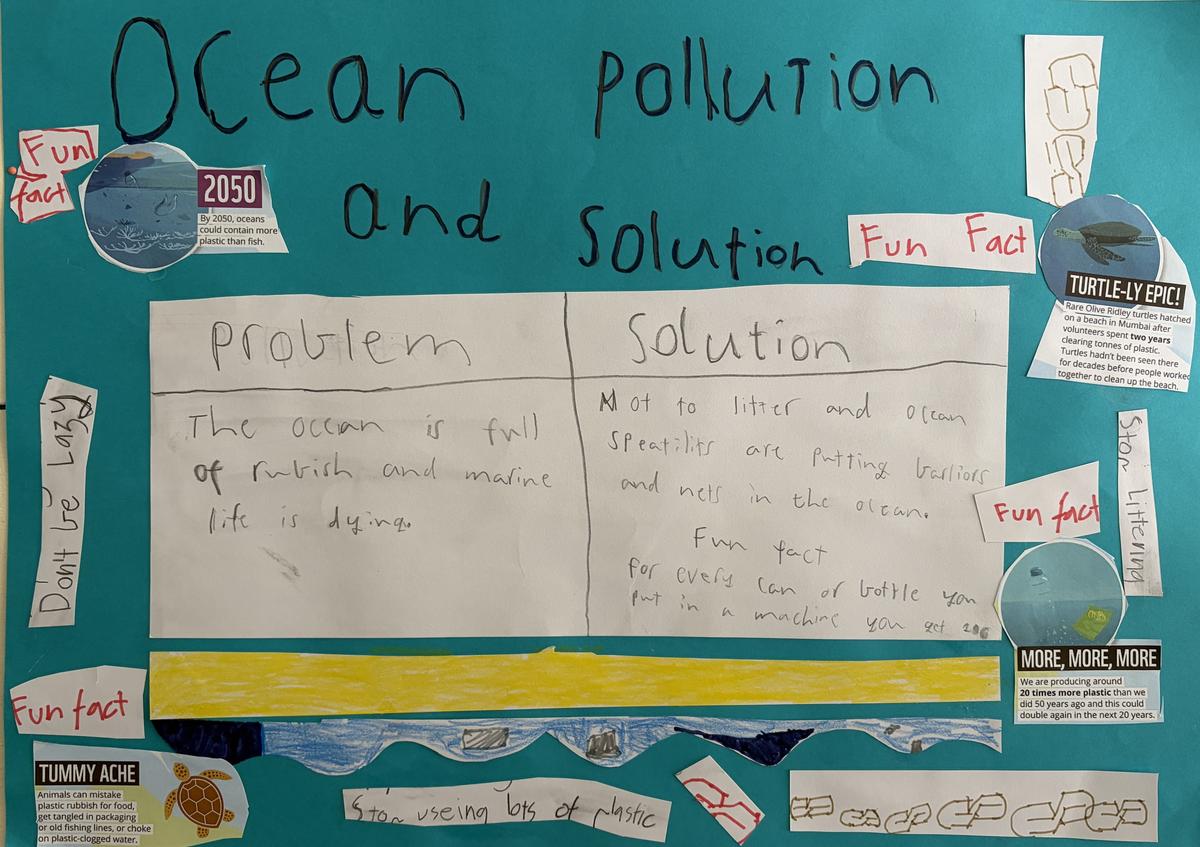 Ocean pollution
and Solution
Fun
fact
2050
By 2050, oceans
could contain more
plastic than fish.
Fun Fact
TURTLE-LY EPIC!
Rare Olive Ridley turtles hatched
on a beach in Mumbai after
volunteers spent two years
clearing tonnes of plastic.
Turtles hadn't been seen there
for decades before people worked
together to clean up the beach.
Problem
The ocean is full
of rubish and marine
life is dying.
Solution
Not to litter and ocean
speatilits are putting barliors
and nets in the ocean.
Fun fact
for every can or bottle you
put in a machine you get
Don't be Lazy
Stop Littering
Fun fact
MORE, MORE, MORE
We are producing around
20 times more plastic than we
did 50 years ago and this could
double again in the next 20 years.
Fun fact
TUMMY ACHE
Animals can mistake
plastic rubbish for food,
get tangled in packaging
or old fishing lines, or choke
on plastic-clogged water.
Stop useing lots of plastic